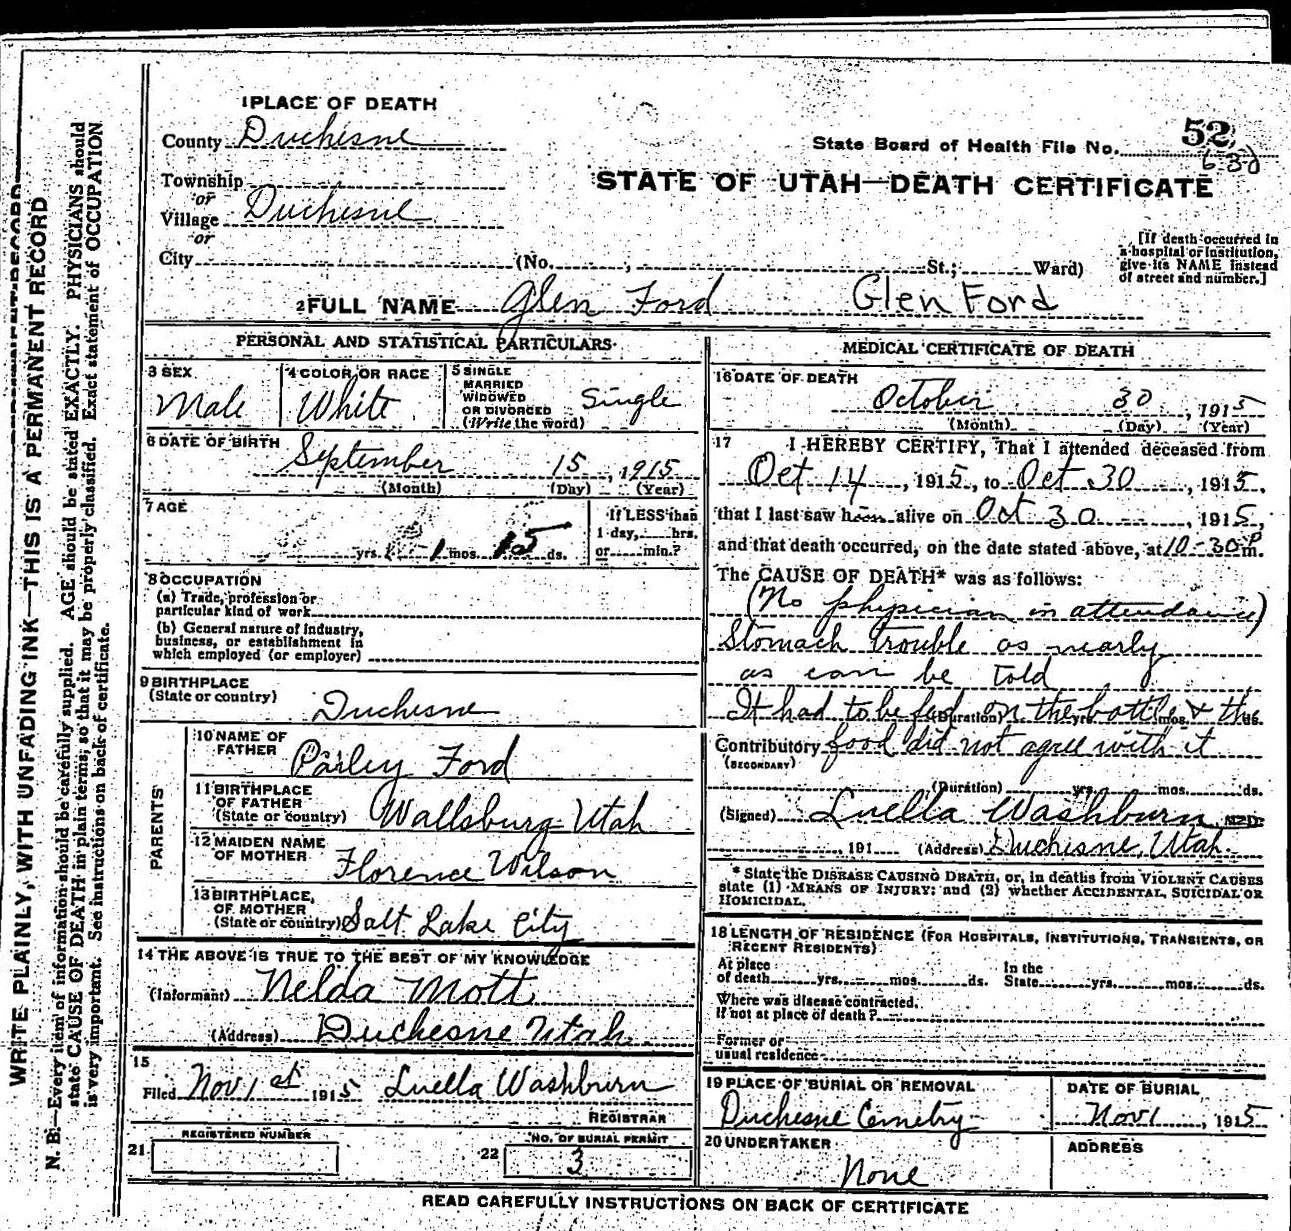 WRITE PLAINLY, WITH UNFADING INK—THIS IS A PERMANENT RECORD
N. B.—Every item of information should be carefully supplied. AGE should be stated EXACTLY. PHYSICIANS should
state CAUSE OF DEATH in plain terms, so that it may be properly classified. Exact statement of OCCUPATION
is very important. See instructions on back of certificate.
1 PLACE OF DEATH
County Duchesne
Township
or
Village Duchesne
or
City (No. , St.; Ward)
State Board of Health File No. 52
630
STATE OF UTAH—DEATH CERTIFICATE
[If death occurred in
a hospital or institution,
give its NAME instead
of street and number.]
2 FULL NAME Glen Ford Glen Ford
PERSONAL AND STATISTICAL PARTICULARS
3 SEX Male
4 COLOR OR RACE White
5 SINGLE
MARRIED
WIDOWED
OR DIVORCED
(Write the word) Single
6 DATE OF BIRTH September 15, 1915
(Month) (Day) (Year)
7 AGE
yrs. 1 mos. 15 ds.
If LESS than
1 day, hrs.
or min.?
8 OCCUPATION
(a) Trade, profession or
particular kind of work
(b) General nature of industry,
business, or establishment in
which employed (or employer)
9 BIRTHPLACE
(State or country) Duchesne
PARENTS
10 NAME OF
FATHER Parley Ford
11 BIRTHPLACE
OF FATHER
(State or country) Wallsburg Utah
12 MAIDEN NAME
OF MOTHER Florence Wilson
13 BIRTHPLACE,
OF MOTHER
(State or country) Salt Lake City
14 THE ABOVE IS TRUE TO THE BEST OF MY KNOWLEDGE
(Informant) Nelda Mott
(Address) Duchesne Utah
15
Filed Nov 1st 1915 Luella Washburn
REGISTRAR
21 REGISTERED NUMBER
22 NO. OF BURIAL PERMIT
3
MEDICAL CERTIFICATE OF DEATH
16 DATE OF DEATH
October 30, 1915
(Month) (Day) (Year)
17 I HEREBY CERTIFY, That I attended deceased from
Oct 14, 1915, to Oct 30, 1915,
that I last saw him alive on Oct 30, 1915,
and that death occurred, on the date stated above, at 10-30 P m.
The CAUSE OF DEATH* was as follows:
(No physician in attendance)
Stomach trouble as nearly
as can be told
It had to be fed on the bottle & the
(Duration) yrs. mos. ds.
Contributory food did not agree with it
(SECONDARY)
(Duration) yrs. mos. ds.
(Signed) Luella Washburn M. D.
, 191 (Address) Duchesne, Utah.
* State the DISEASE CAUSING DEATH, or, in deaths from VIOLENT CAUSES
state (1) MEANS OF INJURY; and (2) whether ACCIDENTAL, SUICIDAL OR
HOMICIDAL.
18 LENGTH OF RESIDENCE (FOR HOSPITALS, INSTITUTIONS, TRANSIENTS, OR
RECENT RESIDENTS)
At place
of death yrs. mos. ds.
In the
State yrs. mos. ds.
Where was disease contracted.
If not at place of death?
Former or
usual residence
19 PLACE OF BURIAL OR REMOVAL
Duchesne Cemetry
DATE OF BURIAL
Nov 1, 1915
20 UNDERTAKER
None
ADDRESS
READ CAREFULLY INSTRUCTIONS ON BACK OF CERTIFICATE